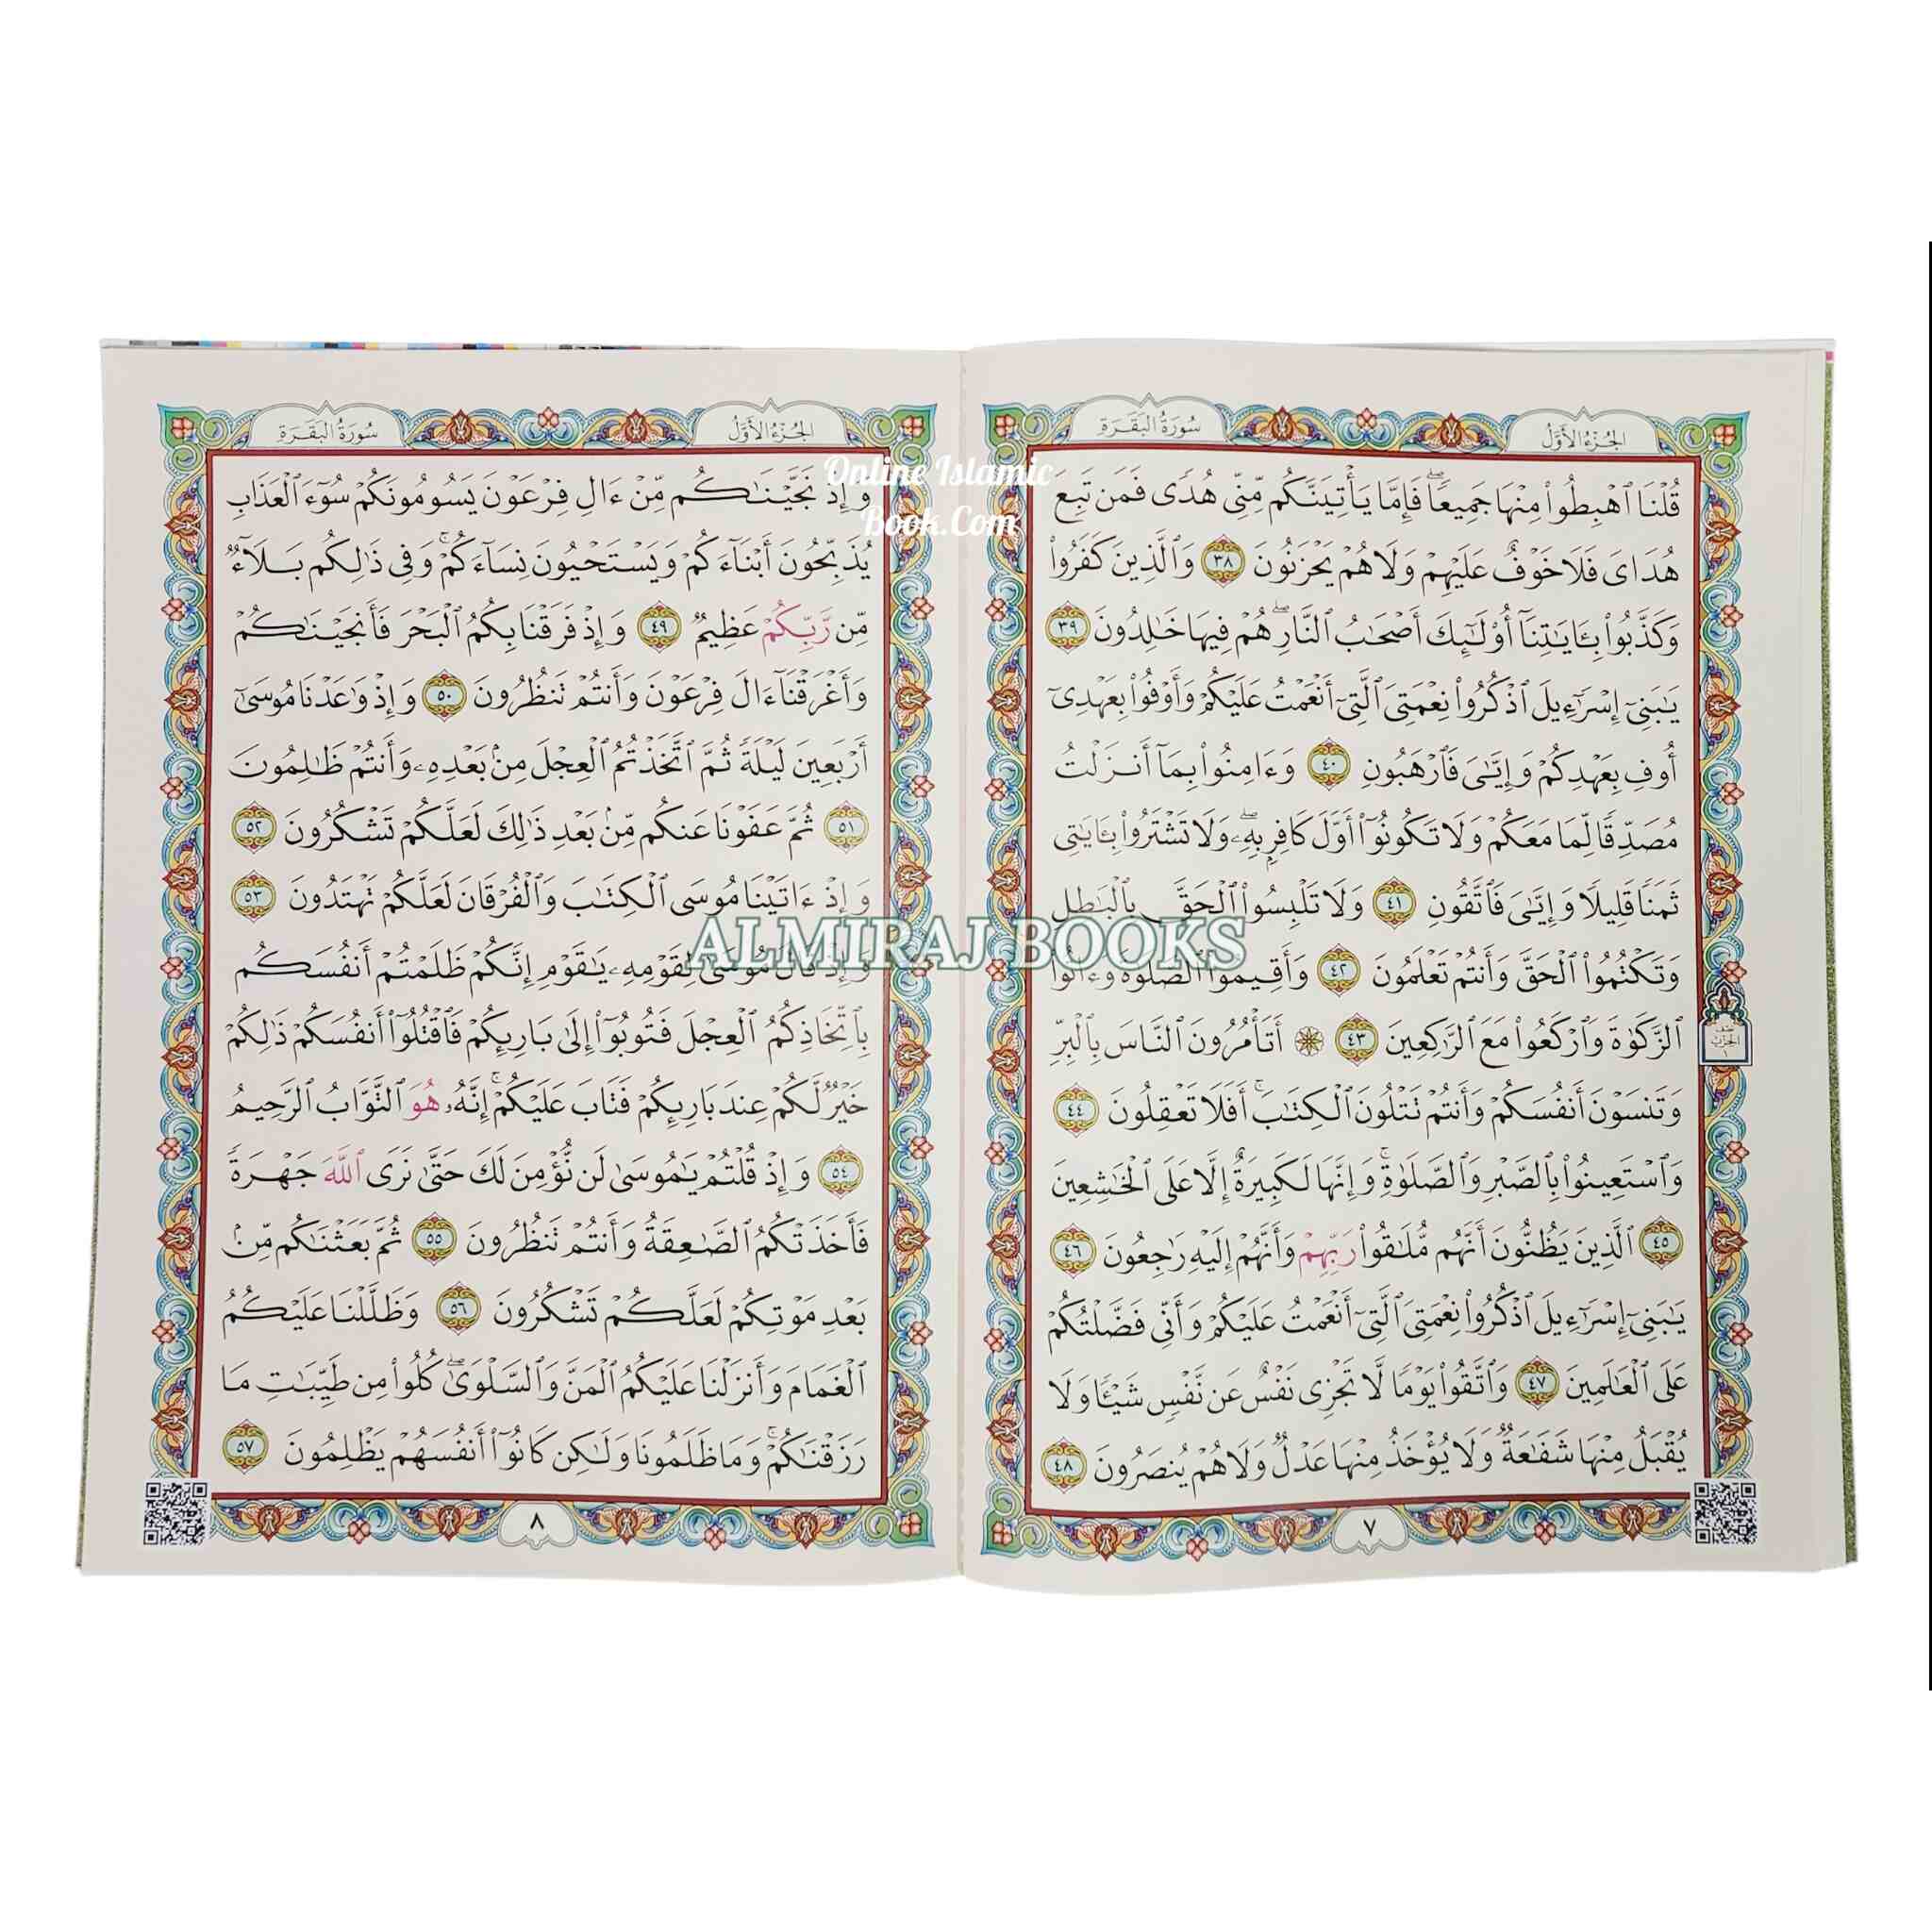 الجزء الأول
سورة البقرة
قُلْنَا ٱهْبِطُوا۟ مِنْهَا جَمِيعًۭا ۖ فَإِمَّا يَأْتِيَنَّكُم مِّنِّى هُدًۭى فَمَن تَبِعَ
هُدَاىَ فَلَا خَوْفٌ عَلَيْهِمْ وَلَا هُمْ يَحْزَنُونَ ٣٨ وَٱلَّذِينَ كَفَرُوا۟
وَكَذَّبُوا۟ بِـَٔايَـٰتِنَآ أُو۟لَـٰٓئِكَ أَصْحَـٰبُ ٱلنَّارِ ۖ هُمْ فِيهَا خَـٰلِدُونَ ٣٩
يَـٰبَنِىٓ إِسْرَٰٓءِيلَ ٱذْكُرُوا۟ نِعْمَتِىَ ٱلَّتِىٓ أَنْعَمْتُ عَلَيْكُمْ وَأَوْفُوا۟ بِعَهْدِىٓ
أُوفِ بِعَهْدِكُمْ وَإِيَّـٰىَ فَٱرْهَبُونِ ٤٠ وَءَامِنُوا۟ بِمَآ أَنزَلْتُ
مُصَدِّقًۭا لِّمَا مَعَكُمْ وَلَا تَكُونُوٓا۟ أَوَّلَ كَافِرٍۭ بِهِۦ ۖ وَلَا تَشْتَرُوا۟ بِـَٔايَـٰتِى
ثَمَنًۭا قَلِيلًۭا وَإِيَّـٰىَ فَٱتَّقُونِ ٤١ وَلَا تَلْبِسُوا۟ ٱلْحَقَّ بِٱلْبَـٰطِلِ
وَتَكْتُمُوا۟ ٱلْحَقَّ وَأَنتُمْ تَعْلَمُونَ ٤٢ وَأَقِيمُوا۟ ٱلصَّلَوٰةَ وَءَاتُوا۟
ٱلزَّكَوٰةَ وَٱرْكَعُوا۟ مَعَ ٱلرَّٰكِعِينَ ٤٣ ۞ أَتَأْمُرُونَ ٱلنَّاسَ بِٱلْبِرِّ
نصف الحزب ١
وَتَنسَوْنَ أَنفُسَكُمْ وَأَنتُمْ تَتْلُونَ ٱلْكِتَـٰبَ ۚ أَفَلَا تَعْقِلُونَ ٤٤
وَٱسْتَعِينُوا۟ بِٱلصَّبْرِ وَٱلصَّلَوٰةِ ۚ وَإِنَّهَا لَكَبِيرَةٌ إِلَّا عَلَى ٱلْخَـٰشِعِينَ
٤٥ ٱلَّذِينَ يَظُنُّونَ أَنَّهُم مُّلَـٰقُوا۟ رَبِّهِمْ وَأَنَّهُمْ إِلَيْهِ رَٰجِعُونَ ٤٦
يَـٰبَنِىٓ إِسْرَٰٓءِيلَ ٱذْكُرُوا۟ نِعْمَتِىَ ٱلَّتِىٓ أَنْعَمْتُ عَلَيْكُمْ وَأَنِّى فَضَّلْتُكُمْ
عَلَى ٱلْعَـٰلَمِينَ ٤٧ وَٱتَّقُوا۟ يَوْمًۭا لَّا تَجْزِى نَفْسٌ عَن نَّفْسٍۢ شَيْـًۭٔا وَلَا
يُقْبَلُ مِنْهَا شَفَـٰعَةٌۭ وَلَا يُؤْخَذُ مِنْهَا عَدْلٌۭ وَلَا هُمْ يُنصَرُونَ ٤٨
٧
الجزء الأول
سورة البقرة
وَإِذْ نَجَّيْنَـٰكُم مِّنْ ءَالِ فِرْعَوْنَ يَسُومُونَكُمْ سُوٓءَ ٱلْعَذَابِ
يُذَبِّحُونَ أَبْنَآءَكُمْ وَيَسْتَحْيُونَ نِسَآءَكُمْ ۚ وَفِى ذَٰلِكُم بَلَآءٌۭ
مِّن رَّبِّكُمْ عَظِيمٌۭ ٤٩ وَإِذْ فَرَقْنَا بِكُمُ ٱلْبَحْرَ فَأَنجَيْنَـٰكُمْ
وَأَغْرَقْنَآ ءَالَ فِرْعَوْنَ وَأَنتُمْ تَنظُرُونَ ٥٠ وَإِذْ وَٰعَدْنَا مُوسَىٰٓ
أَرْبَعِينَ لَيْلَةًۭ ثُمَّ ٱتَّخَذْتُمُ ٱلْعِجْلَ مِنۢ بَعْدِهِۦ وَأَنتُمْ ظَـٰلِمُونَ
٥١ ثُمَّ عَفَوْنَا عَنكُم مِّنۢ بَعْدِ ذَٰلِكَ لَعَلَّكُمْ تَشْكُرُونَ ٥٢
وَإِذْ ءَاتَيْنَا مُوسَى ٱلْكِتَـٰبَ وَٱلْفُرْقَانَ لَعَلَّكُمْ تَهْتَدُونَ ٥٣
وَإِذْ قَالَ مُوسَىٰ لِقَوْمِهِۦ يَـٰقَوْمِ إِنَّكُمْ ظَلَمْتُمْ أَنفُسَكُم
بِٱتِّخَاذِكُمُ ٱلْعِجْلَ فَتُوبُوٓا۟ إِلَىٰ بَارِئِكُمْ فَٱقْتُلُوٓا۟ أَنفُسَكُمْ ذَٰلِكُمْ
خَيْرٌۭ لَّكُمْ عِندَ بَارِئِكُمْ فَتَابَ عَلَيْكُمْ ۚ إِنَّهُۥ هُوَ ٱلتَّوَّابُ ٱلرَّحِيمُ
٥٤ وَإِذْ قُلْتُمْ يَـٰمُوسَىٰ لَن نُّؤْمِنَ لَكَ حَتَّىٰ نَرَى ٱللَّهَ جَهْرَةًۭ
فَأَخَذَتْكُمُ ٱلصَّـٰعِقَةُ وَأَنتُمْ تَنظُرُونَ ٥٥ ثُمَّ بَعَثْنَـٰكُم مِّنۢ
بَعْدِ مَوْتِكُمْ لَعَلَّكُمْ تَشْكُرُونَ ٥٦ وَظَلَّلْنَا عَلَيْكُمُ
ٱلْغَمَامَ وَأَنزَلْنَا عَلَيْكُمُ ٱلْمَنَّ وَٱلسَّلْوَىٰ ۖ كُلُوا۟ مِن طَيِّبَـٰتِ مَا
رَزَقْنَـٰكُمْ ۖ وَمَا ظَلَمُونَا وَلَـٰكِن كَانُوٓا۟ أَنفُسَهُمْ يَظْلِمُونَ ٥٧
٨
Online Islamic
Book.Com
ALMIRAJ BOOKS